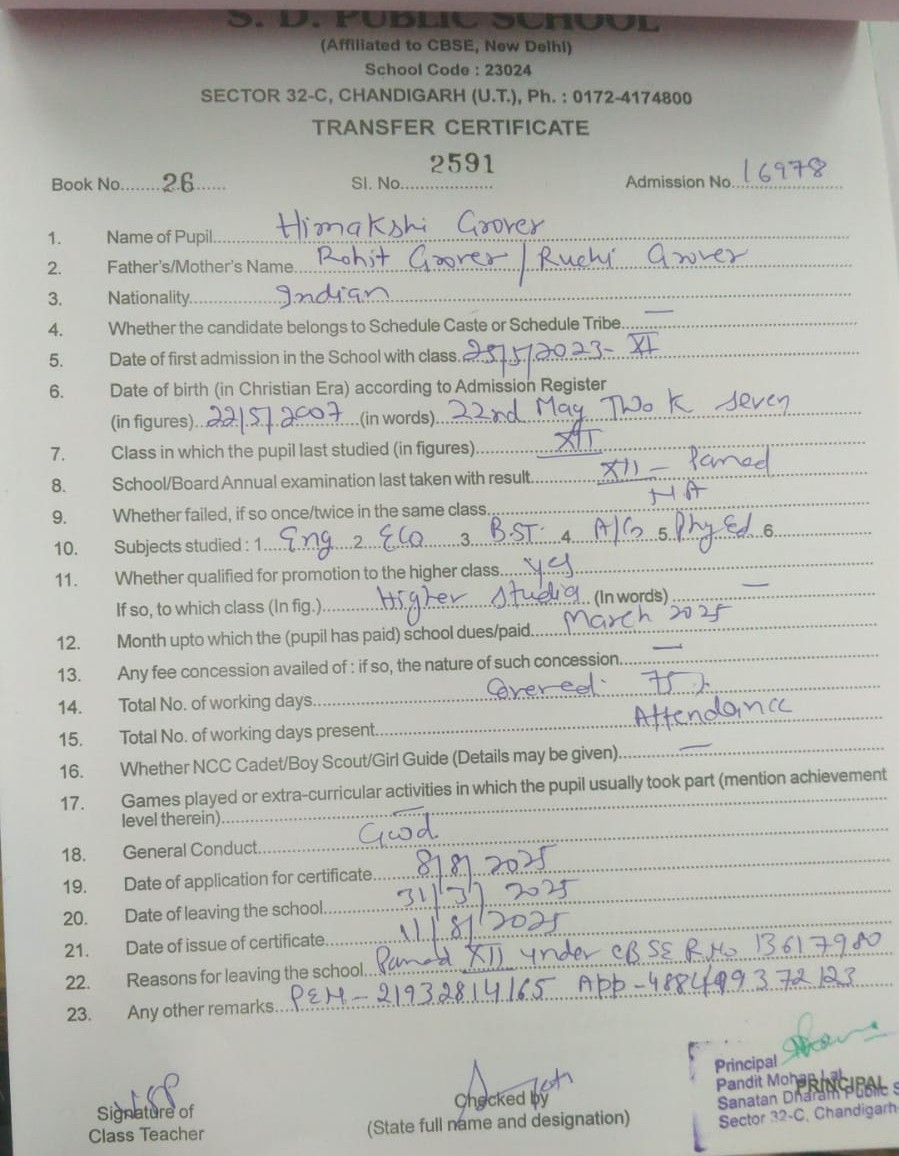 S. D. PUBLIC SCHOOL
(Affiliated to CBSE, New Delhi)
School Code : 23024
SECTOR 32-C, CHANDIGARH (U.T.), Ph. : 0172-4174800
TRANSFER CERTIFICATE
Book No........26...... Sl. No. 2591 Admission No. 16978
1. Name of Pupil Himakshi Grover
2. Father's/Mother's Name Rohit Grover / Ruchi Grover
3. Nationality Indian
4. Whether the candidate belongs to Schedule Caste or Schedule Tribe —
5. Date of first admission in the School with class. 25/5/2023- XI
6. Date of birth (in Christian Era) according to Admission Register
(in figures) 22/5/2007 (in words) 22nd May Two K seven
7. Class in which the pupil last studied (in figures) XII
8. School/Board Annual examination last taken with result XII - Passed
9. Whether failed, if so once/twice in the same class NA
10. Subjects studied : 1 Eng 2 ECO 3 B.ST. 4 A/Cs 5 Phy Ed 6
11. Whether qualified for promotion to the higher class yes
If so, to which class (In fig.) Higher studies (In words) —
12. Month upto which the (pupil has paid) school dues/paid March 2025
13. Any fee concession availed of : if so, the nature of such concession —
14. Total No. of working days Covered 75%
15. Total No. of working days present Attendance
16. Whether NCC Cadet/Boy Scout/Girl Guide (Details may be given) —
17. Games played or extra-curricular activities in which the pupil usually took part (mention achievement
level therein) —
18. General Conduct Good
19. Date of application for certificate 8/8/2025
20. Date of leaving the school 31/3/2025
21. Date of issue of certificate 11/8/2025
22. Reasons for leaving the school Passed XII under CBSE R.No 13617980
23. Any other remarks PEN - 21932814165 App - 488499372123
Signature of
Class Teacher
Checked by
(State full name and designation)
Principal
Pandit Mohan Lal PRINCIPAL
Sanatan Dharam Public S
Sector 32-C, Chandigarh